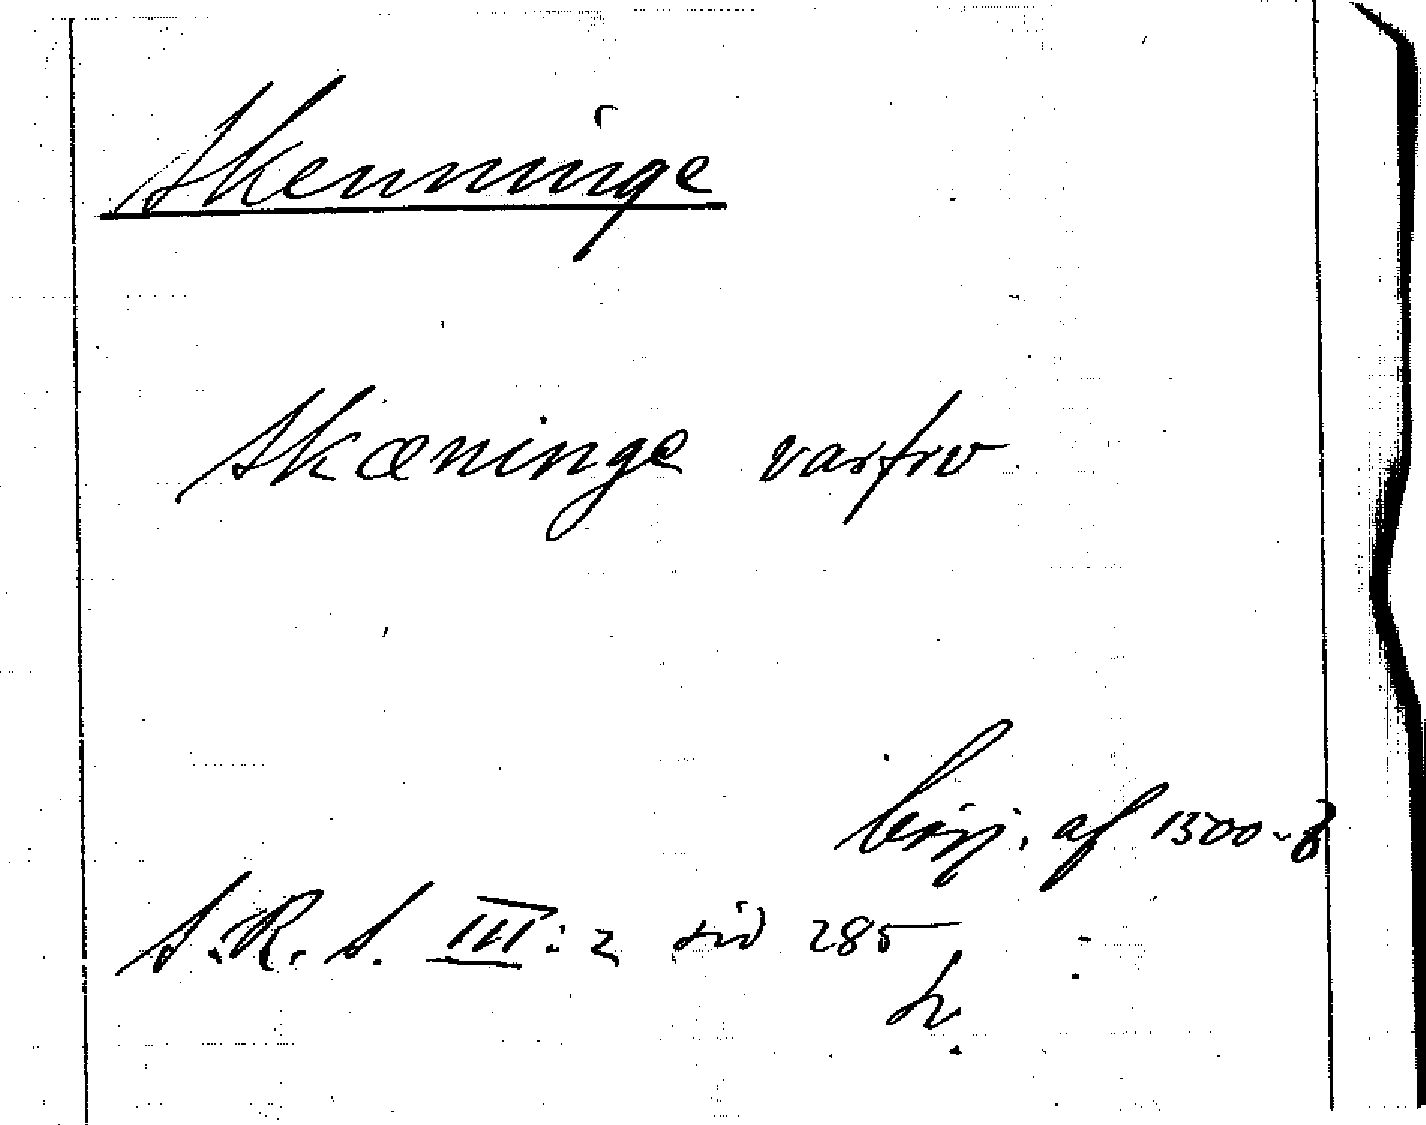 Skenninge
Skæninge varfrv
börj. af 1500-t
S. R. S. III: 2 sid 285